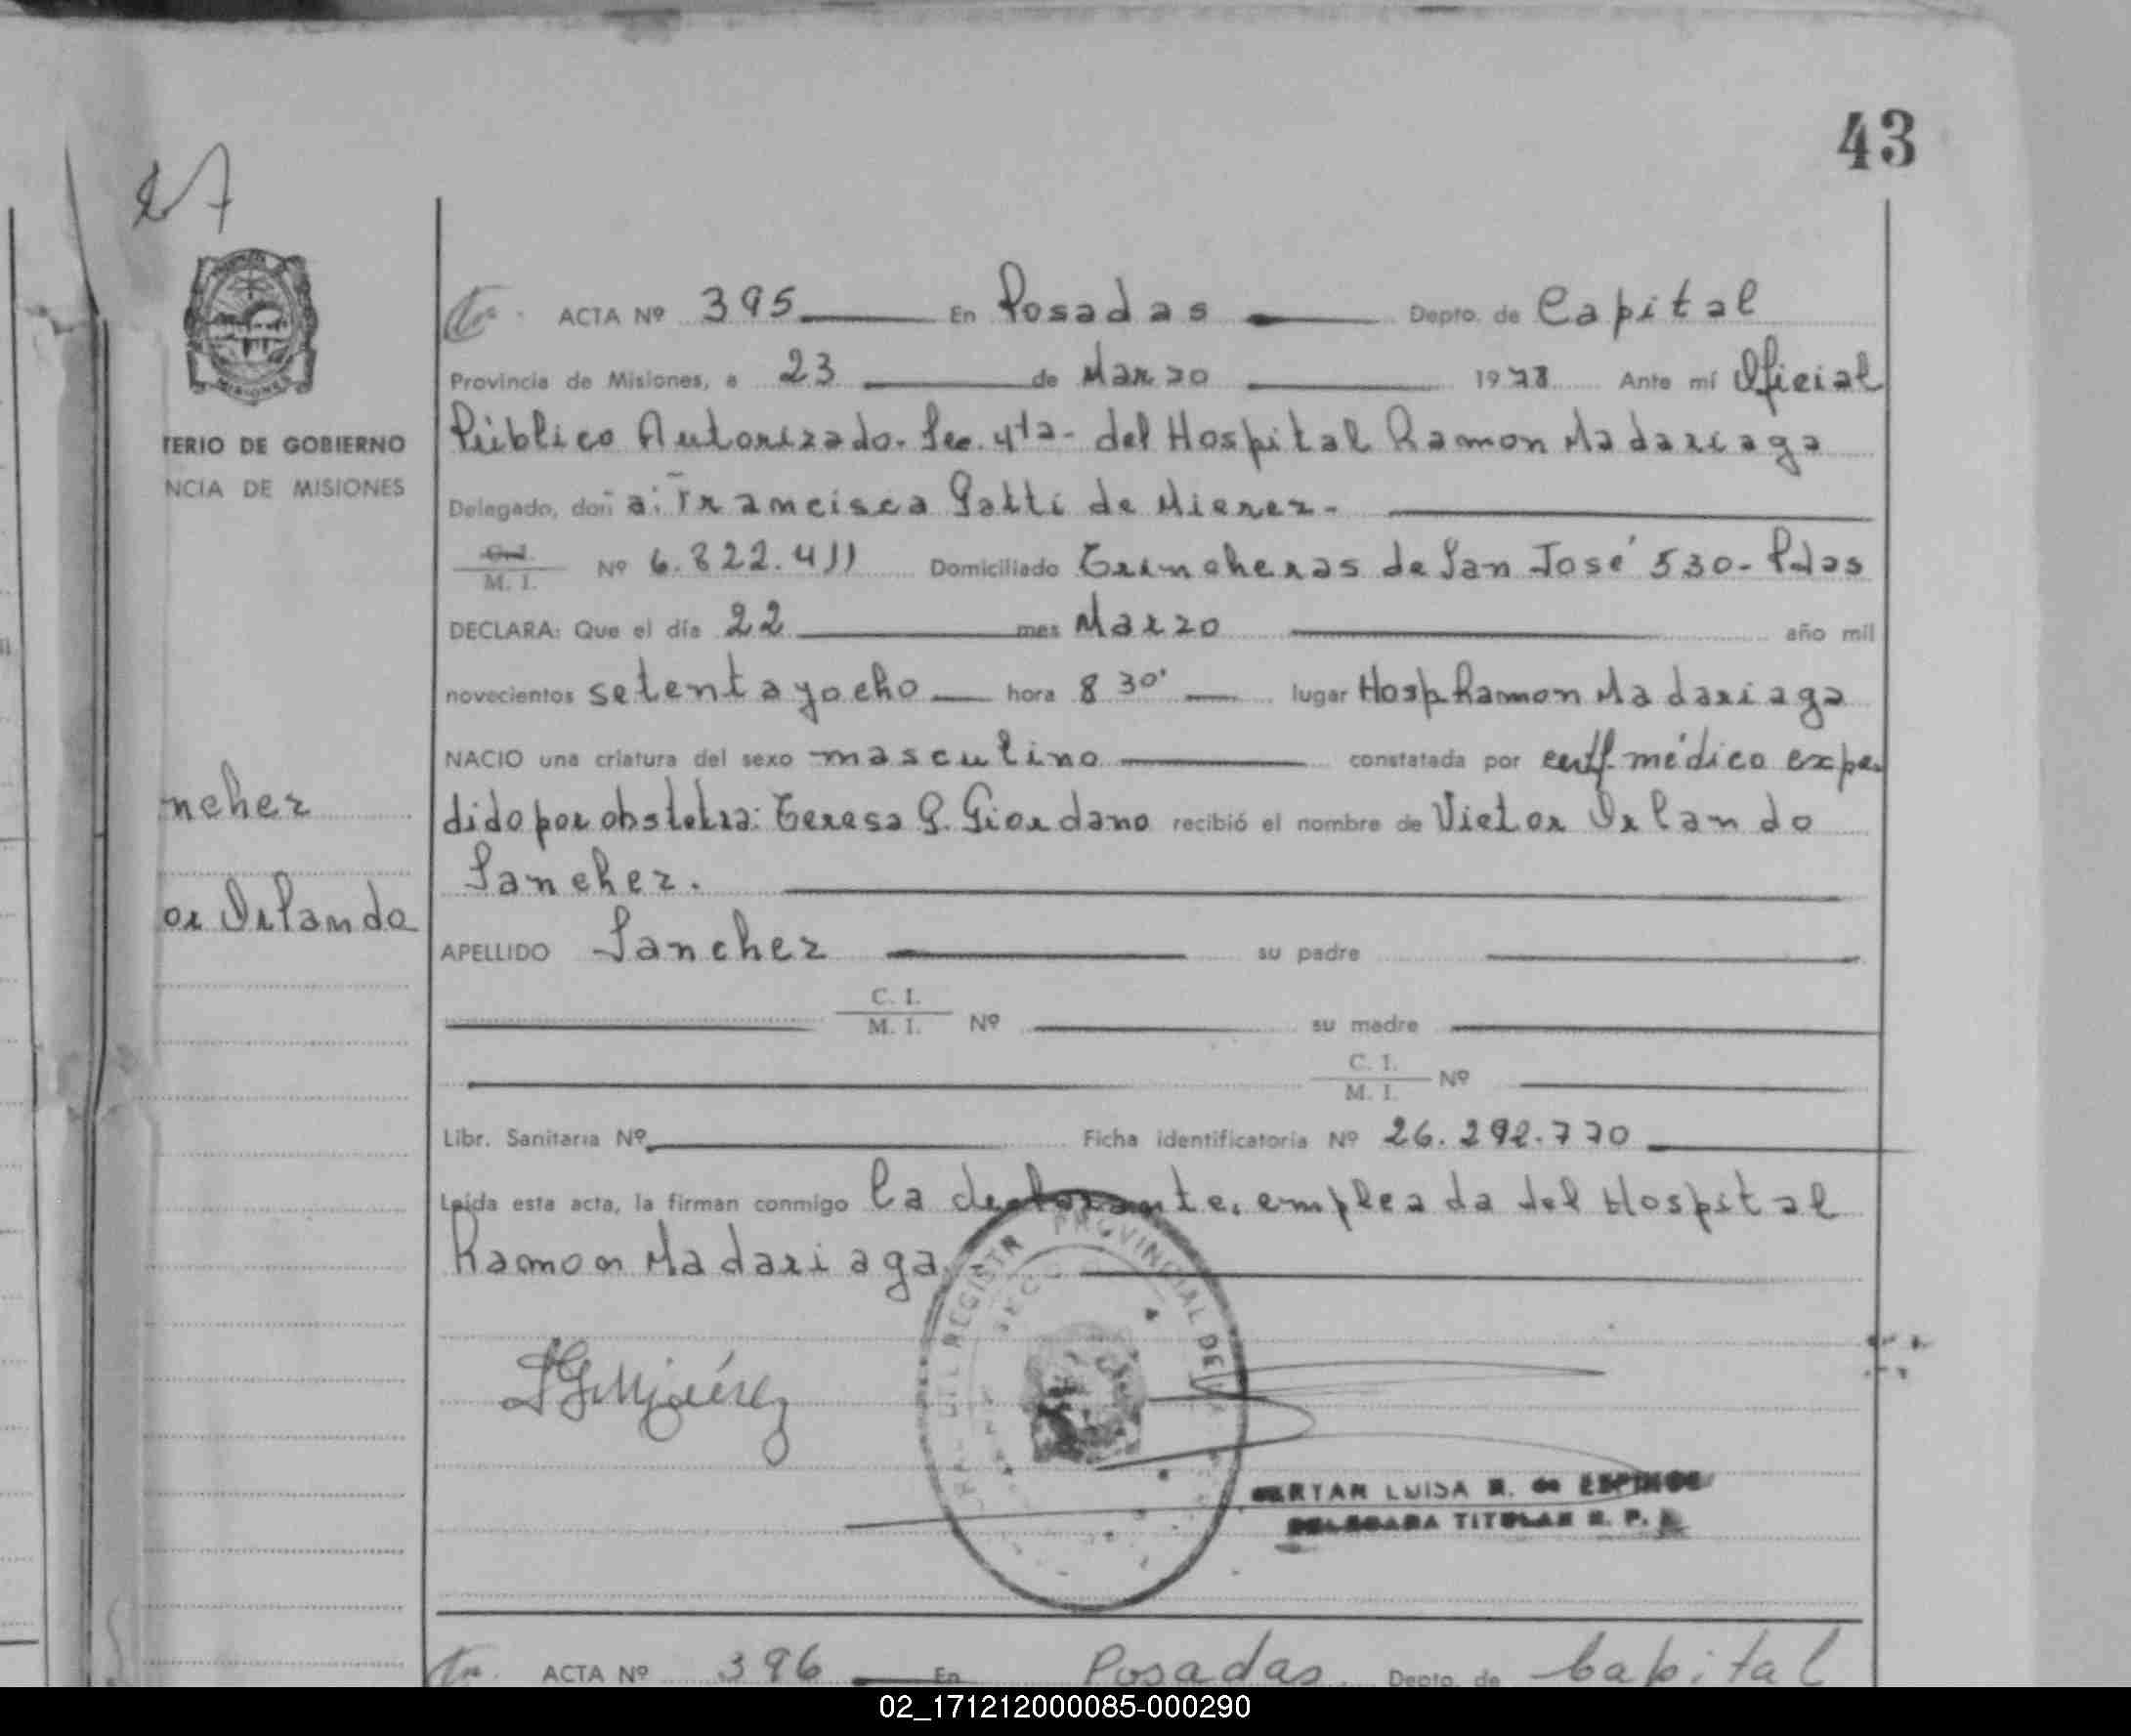 43
ACTA Nº 395 En Posadas Depto. de Capital
Provincia de Misiones, a 23 de Marzo 1978 Ante mí Oficial
Público Autorizado. Sec. 4ta- del Hospital Ramon Madariaga
Delegado, doña: Francisca Gatti de Mierez-
C.I. M. I. Nº 6.822.411 Domiciliado Trincheras de San José 530- Pdas
DECLARA: Que el día 22 mes Marzo año mil
novecientos setenta y ocho hora 8 30' lugar Hosp Ramon Madariaga
NACIO una criatura del sexo masculino constatada por certf. médico expe
dido por obstetra: Teresa G. Giordano recibió el nombre de Victor Orlando
Sanchez.
APELLIDO Sanchez su padre
C. I. M. I. Nº su madre
C. I. M. I. Nº
Libr. Sanitaria Nº Ficha identificatoria Nº 26.292.770
Leída esta acta, la firman conmigo la declarante, empleada del Hospital
Ramon Madariaga
MISIONES
TERIO DE GOBIERNO
NCIA DE MISIONES
ncher
or Orlando
REGISTR PROVINCIAL DE
LUISA R. de
TITULAR R. P.
ACTA Nº 396 En Posadas Depto. de Capital
02_171212000085-000290